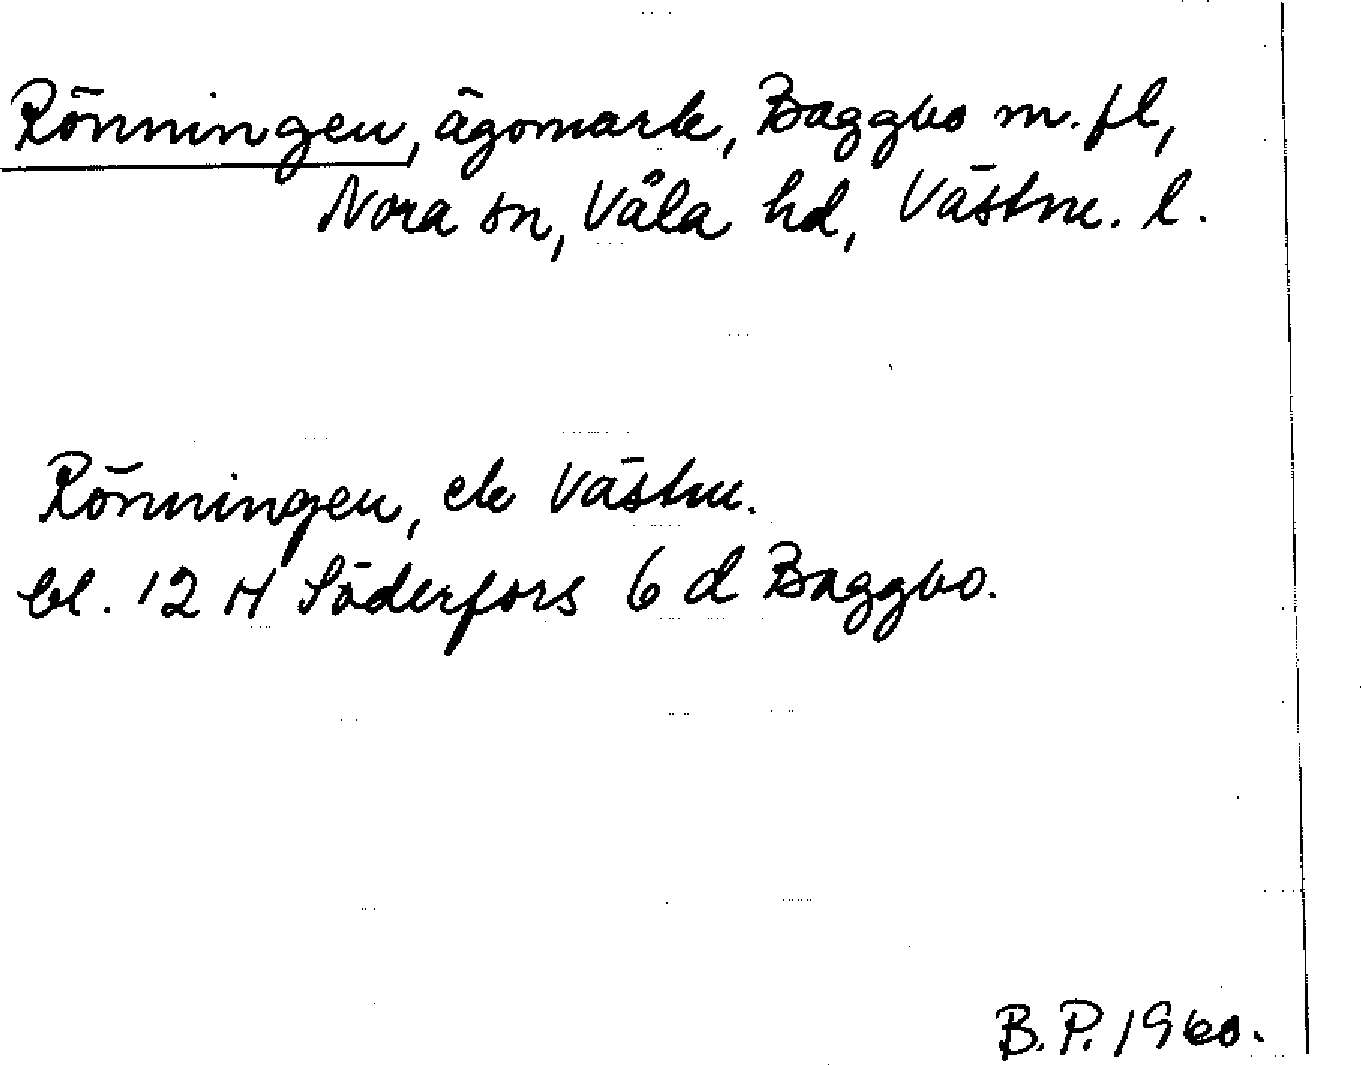 Rönningen, ägomark, Baggbo m. fl,
Nora sn, Våla hd, Västm. l.
Rönningen, ek Västm.
bl. 12 H Söderfors 6 d Baggbo.
B.P. 1960.